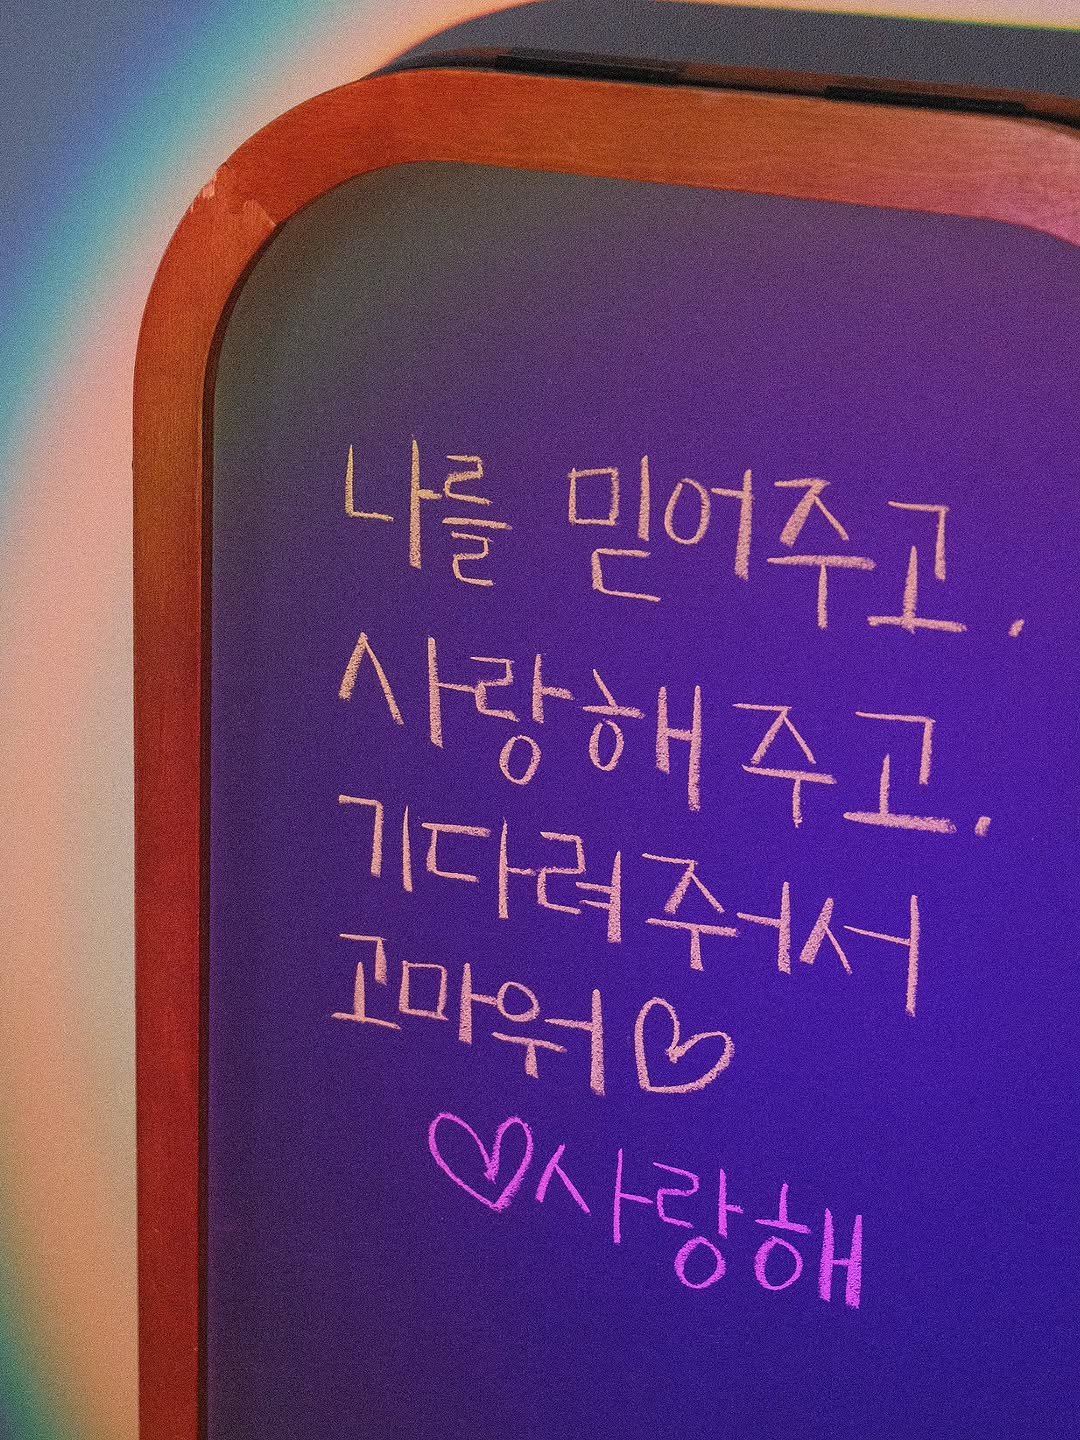 나를 믿어주고.
사랑해주고.
기다려주어서
고마워♡
♡사랑해